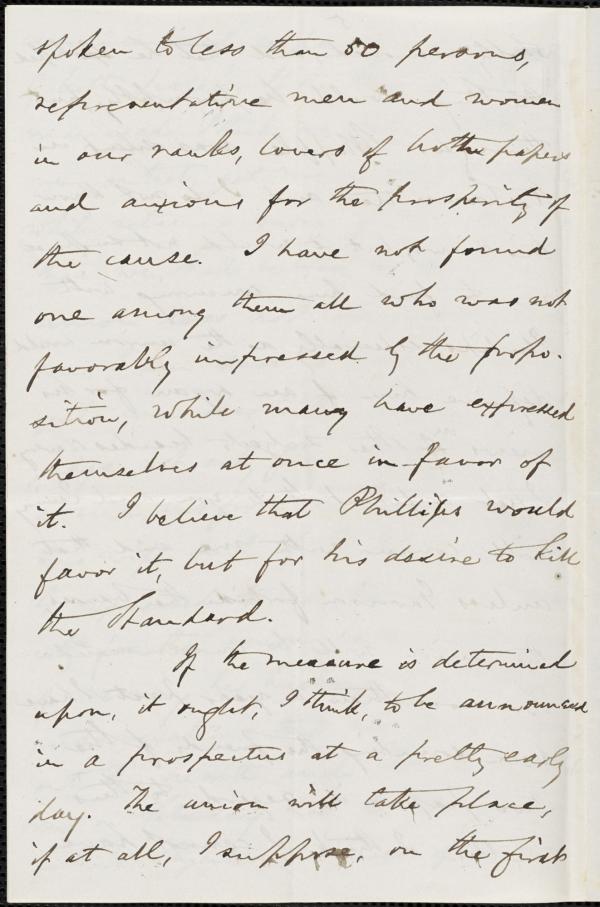 spoken to less than 50 persons,
representative men and women
in our ranks, lovers of both papers
and anxious for the prosperity of
the cause. I have not found
one among them all who was not
favorably impressed by the propo-
sition, while many have expressed
themselves at once in favor of
it. I believe that Phillips would
favor it, but for his desire to kill
the Standard.
If the measure is determined
upon, it ought, I think, to be announced
in a prospectus at a pretty early
day. The union will take place,
if at all, I suppose, on the first